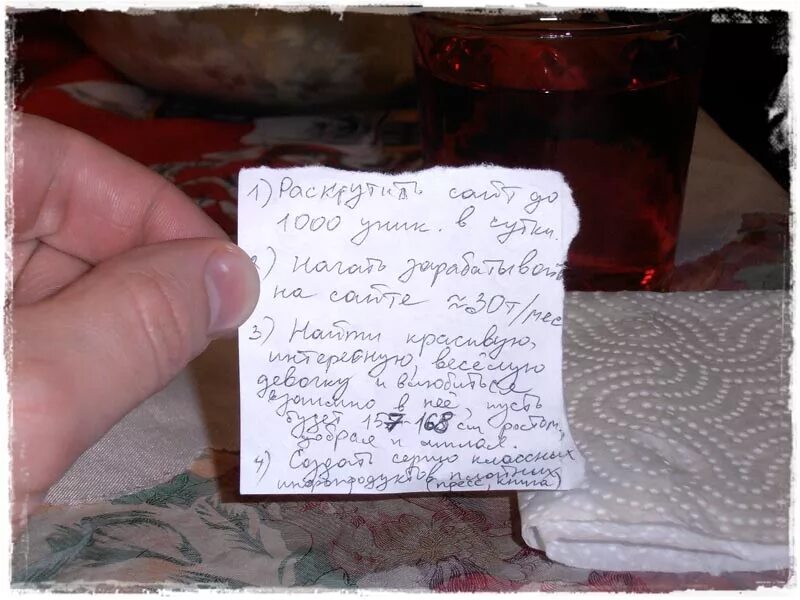 1) Раскрутить сайт до
1000 уник. в сутки.
2) Начать зарабатывать
на сайте ≈30т/мес
3) Найти красивую,
интересную, весёлую
девочку и влюбиться
взаимно в неё, пусть
будет 157-168 см ростом,
добрая и милая.
4) Создать серию классных
инфопродуктов платных
(пресс, книга)